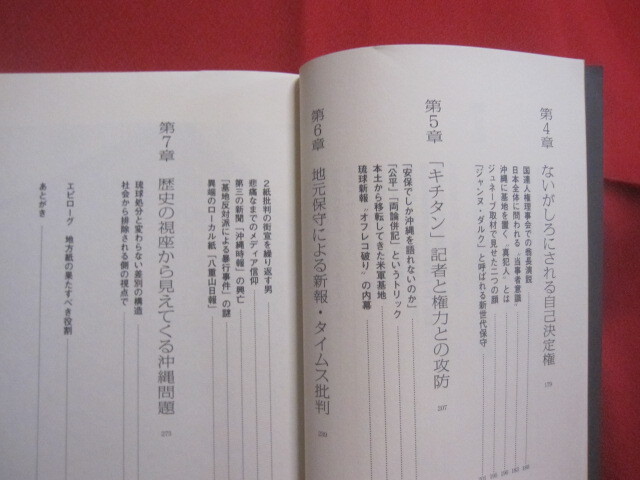 第4章 ないがしろにされる自己決定権
国連人権理事会での翁長演説
日本全体に問われる〝当事者意識〟
沖縄に基地を置く〝真犯人〟とは
ジュネーブ取材で見せた二つの顔
「ジャンヌ・ダルク」と呼ばれる新世代保守
第5章 「キチタン」記者と権力との攻防 207
「安保でしか沖縄を語れないのか」
「公平」「両論併記」というトリック
本土から移転してきた米軍基地
琉球新報〝オフレコ破り〟の内幕
第6章 地元保守による新報・タイムス批判
2紙批判の街宣を繰り返す男
悲痛なまでのメディア信仰
第三の新聞「沖縄時報」の興亡
「基地反対派による暴行事件」の謎
異端のローカル紙「八重山日報」
第7章 歴史の視座から見えてくる沖縄問題
琉球処分と変わらない差別の構造
社会から排除される側の視点で
エピローグ 地方紙の果たすべき役割
あとがき